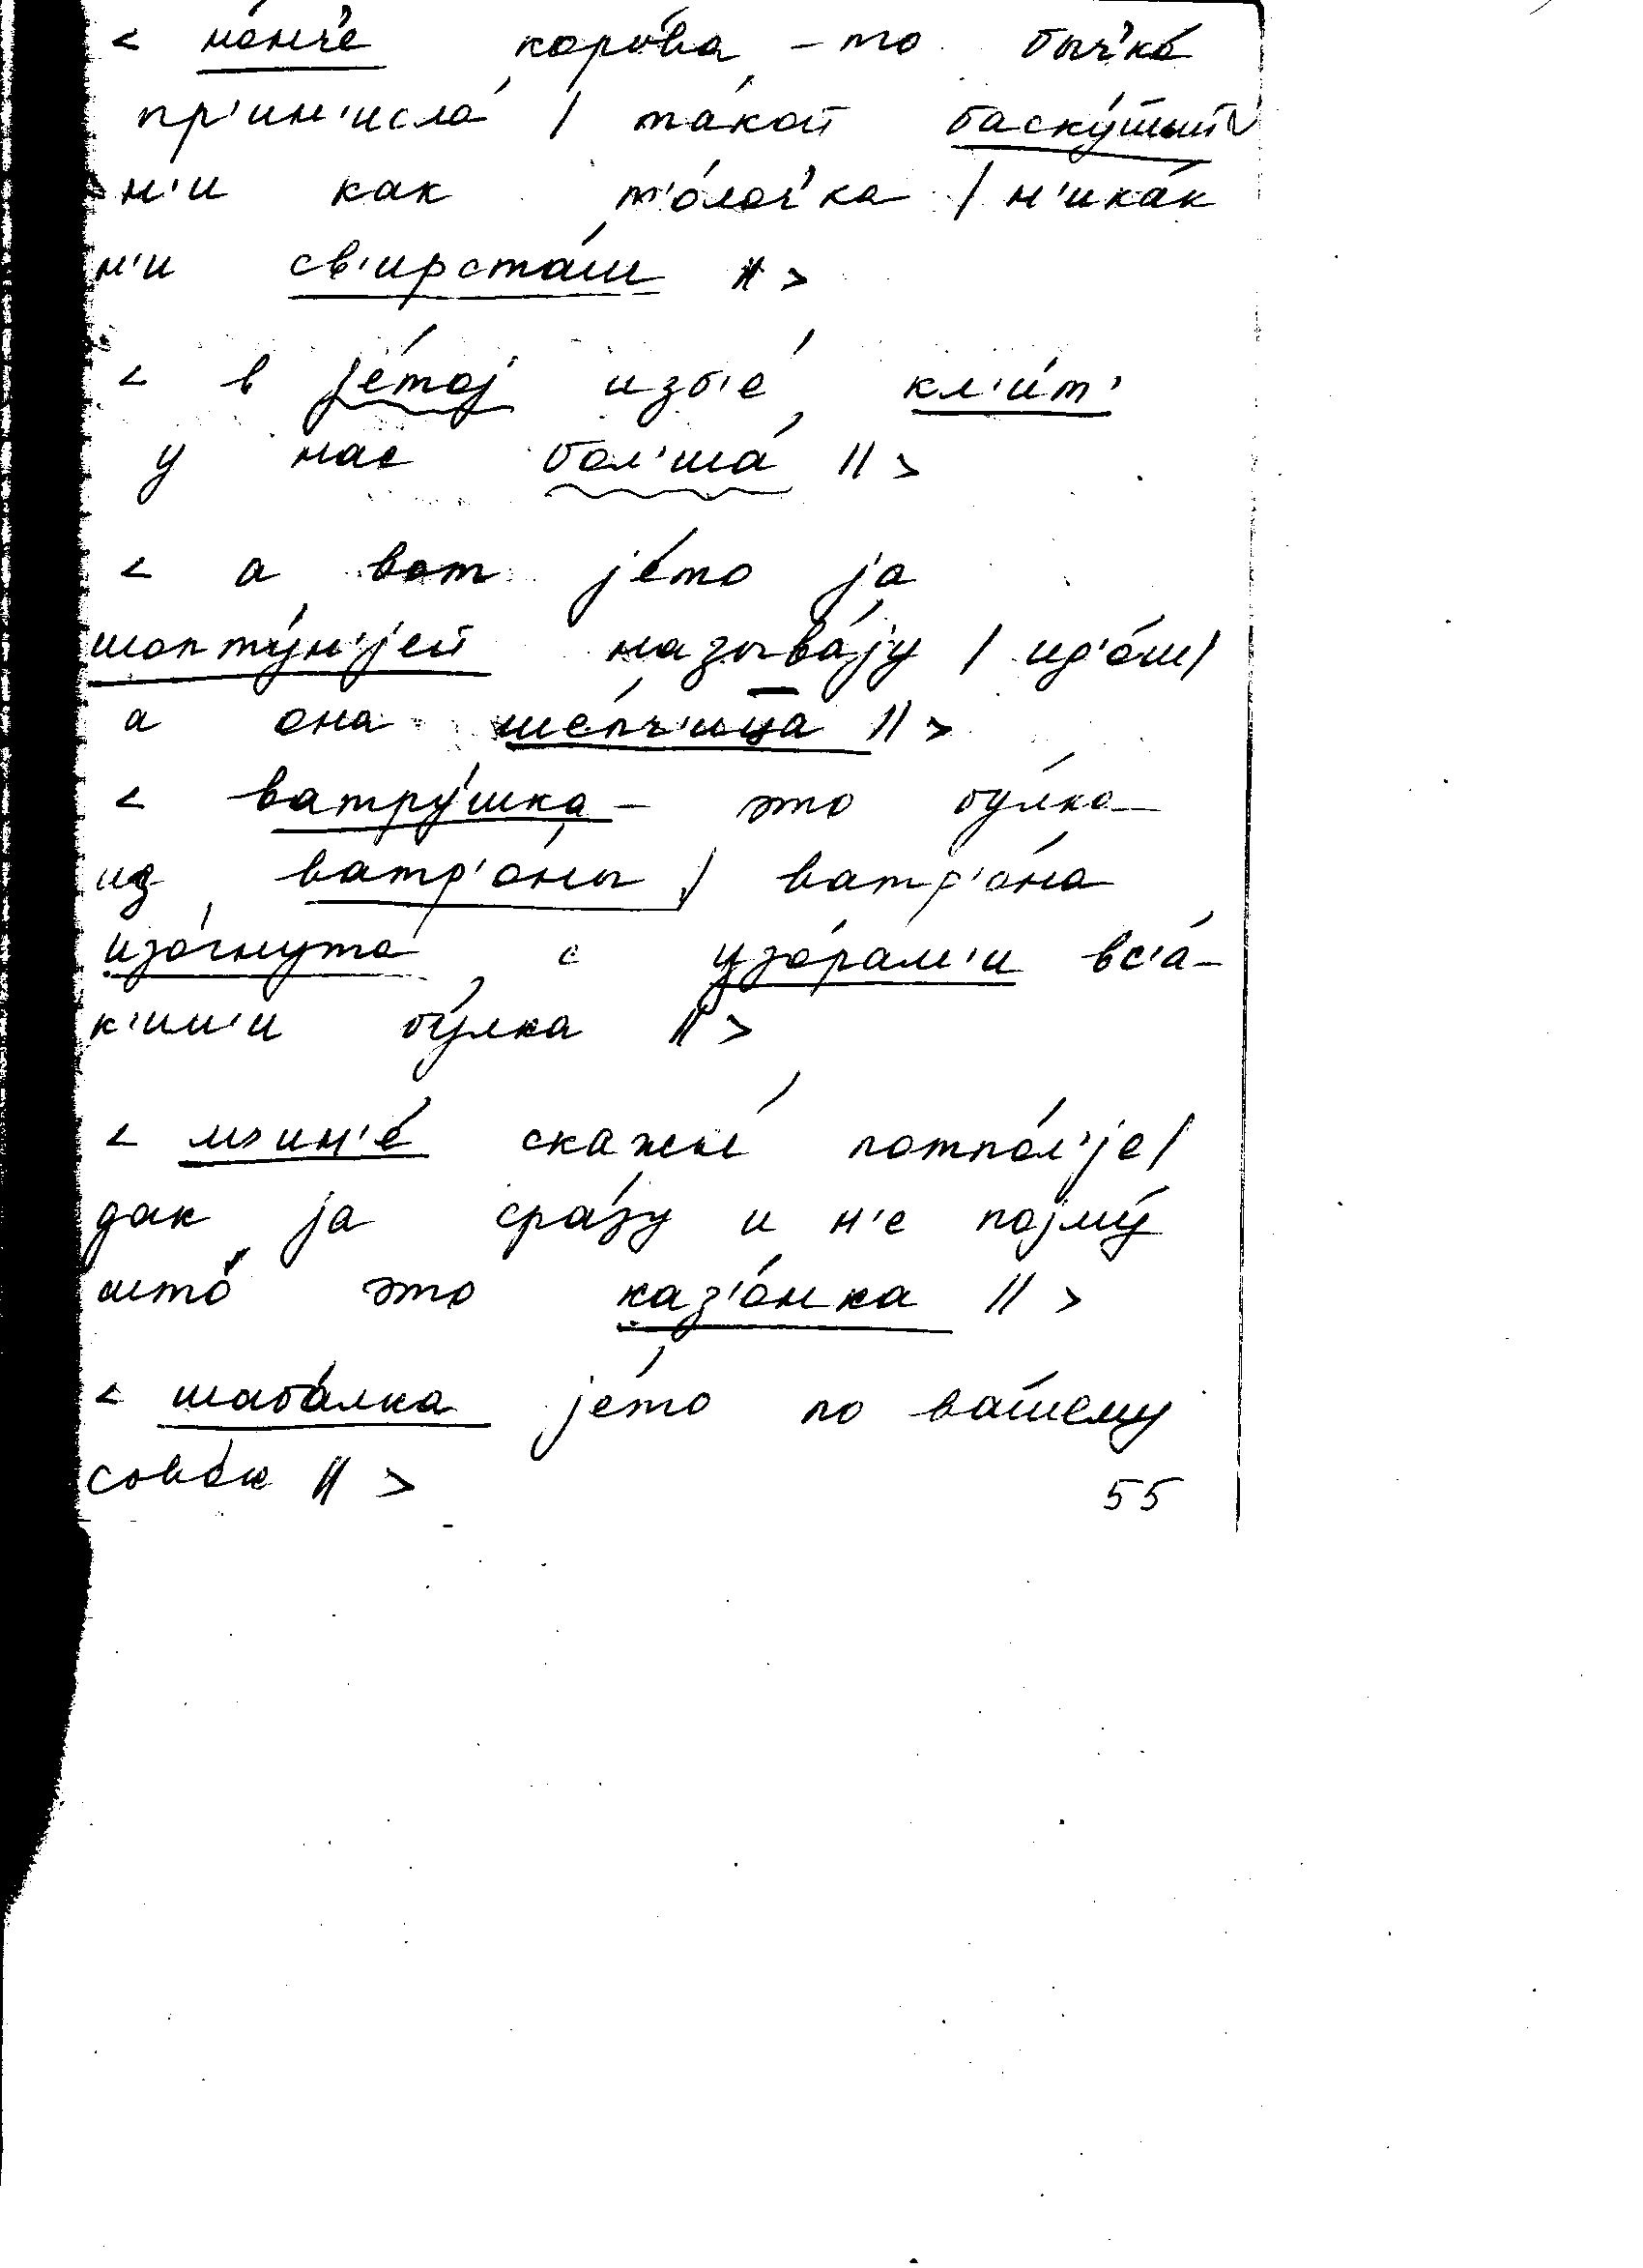 < но́нч'е коро́ва - то бычка́
пр'ин'исла́ / тако́й баску́шшый
н'и как т'о́лоч'ка / н'ика́к
н'и св'ирста́ш // >
< в је́тој изб'е́ кл'ит'
у нас бол'ша́ // >
< а вот је́то ја
шопту́н'јей называ́ју / ид'о́ш /
а она ше́пч'ица // >
< ватру́шка - это бу́лка
из ватр'о́ны / ватр'о́на
изо́гнута с узо́рам'и вс'а́-
к'им'и бу́лка // >
< мъин'е́ скажы́ потпо́л'је /
дак ја сра́зу и н'е појму́
што́ это каз'о́нка // >
< шаба́лка је́то по ва́шему
сово́к // >
55